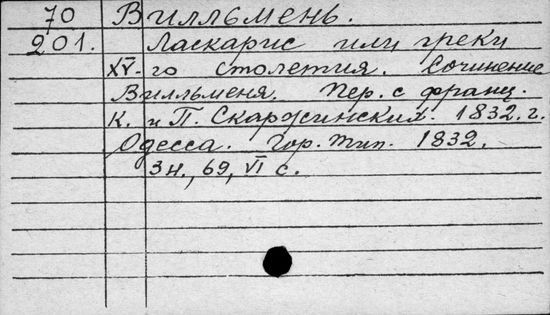 70 Вилльмень.
201. Ласкарис или греки
XV-го столетия. Сочинение
Вилльменя. Пер. с франц.
К. и П. Скаржинских. 1832. г.
Одесса. Гор. тип. 1832.
3 н., 69, VI с.